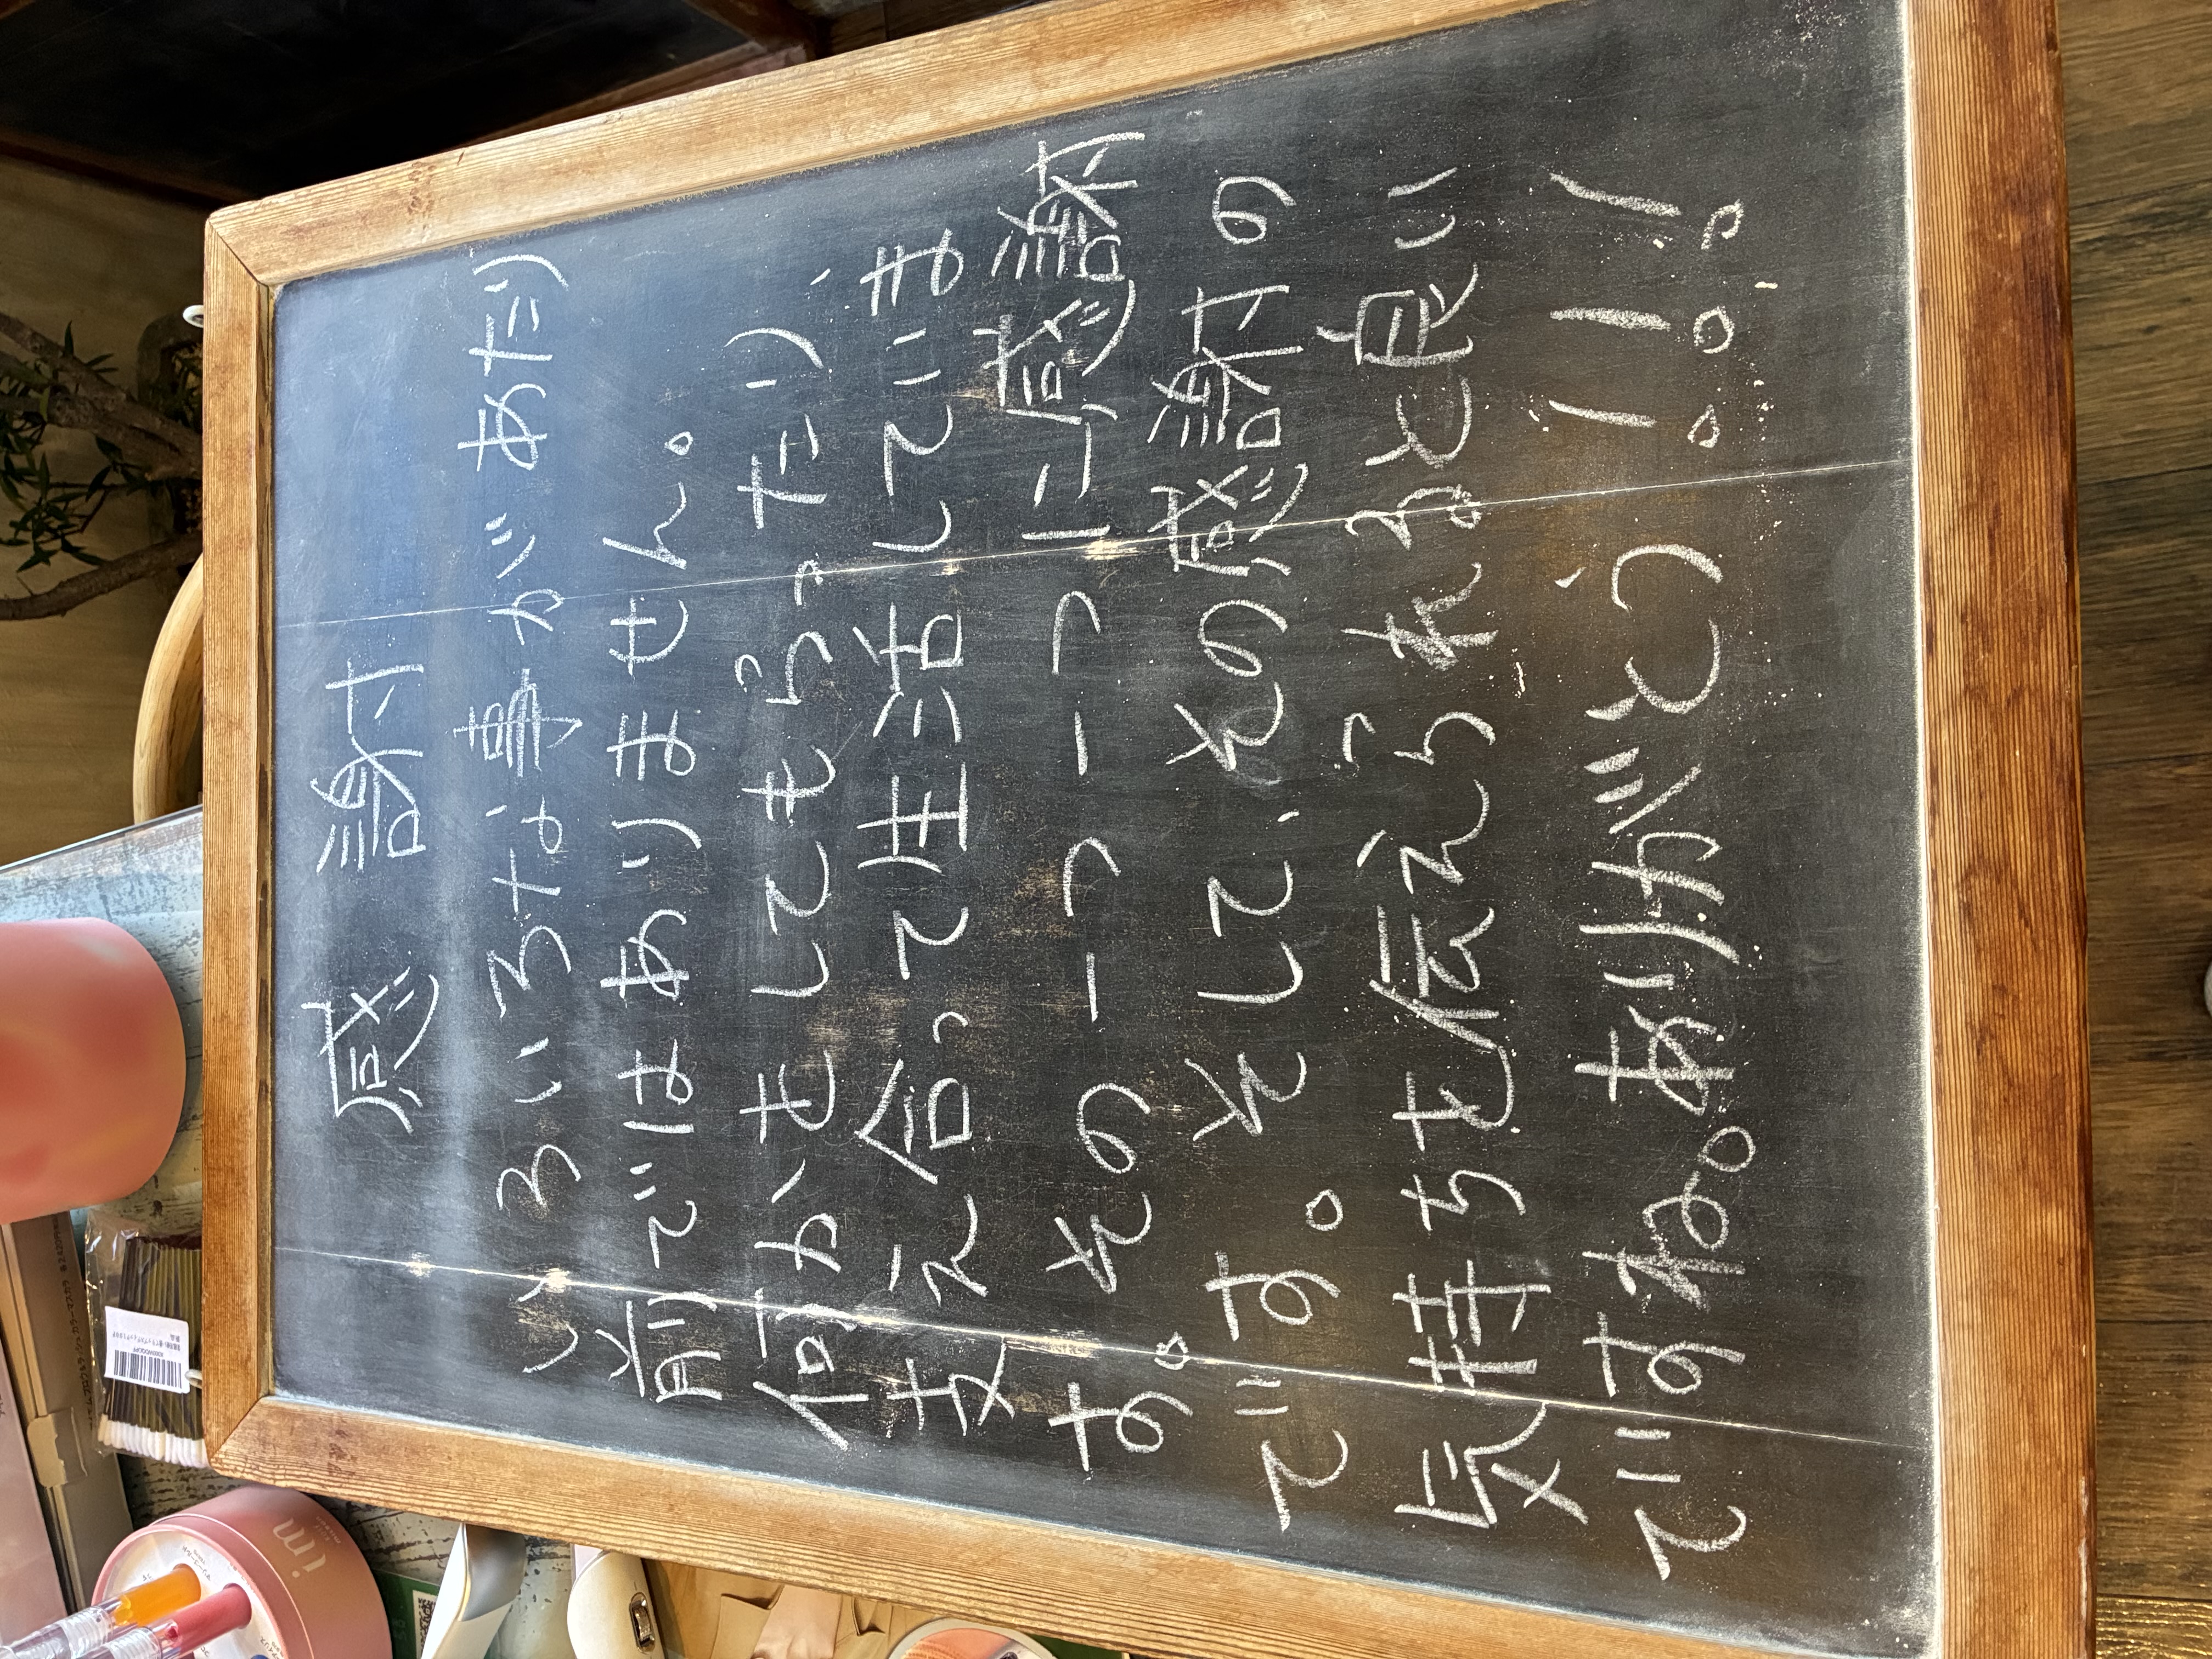 感謝
いろいろな事があたり
前ではありません。
何かをしてもらったり、
支え合って生活していま
す。その一つ一つに感謝
です。そして、その感謝の
気持ちを伝えられると良い
ですね。ありがとう!!!
im